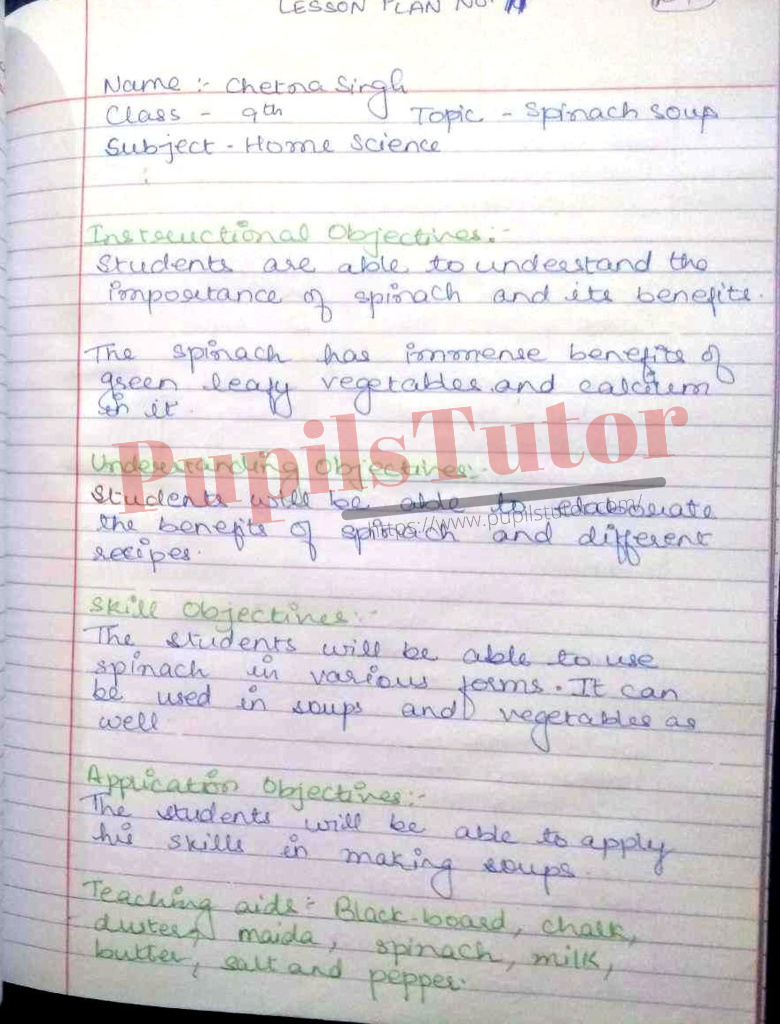 LESSON PLAN NO. 11
Name :- Chetna Singh
Class - 9th Topic - Spinach soup
Subject - Home Science
Instructional Objectives :-
Students are able to understand the
importance of spinach and its benefits.
The spinach has immense benefits of
green leafy vegetables and calcium
in it.
PupilsTutor
Understanding Objectives:-
Students will be able to elaborate
https://www.pupilstutor.com/
the benefits of spinach and different
recipes.
Skill Objectives:-
The students will be able to use
spinach in various forms. It can
be used in soups and vegetables as
well
Application Objectives:-
The students will be able to apply
his skills in making soups.
Teaching aids :- Black-board, chalk,
duster, maida, spinach, milk,
butter, salt and pepper.